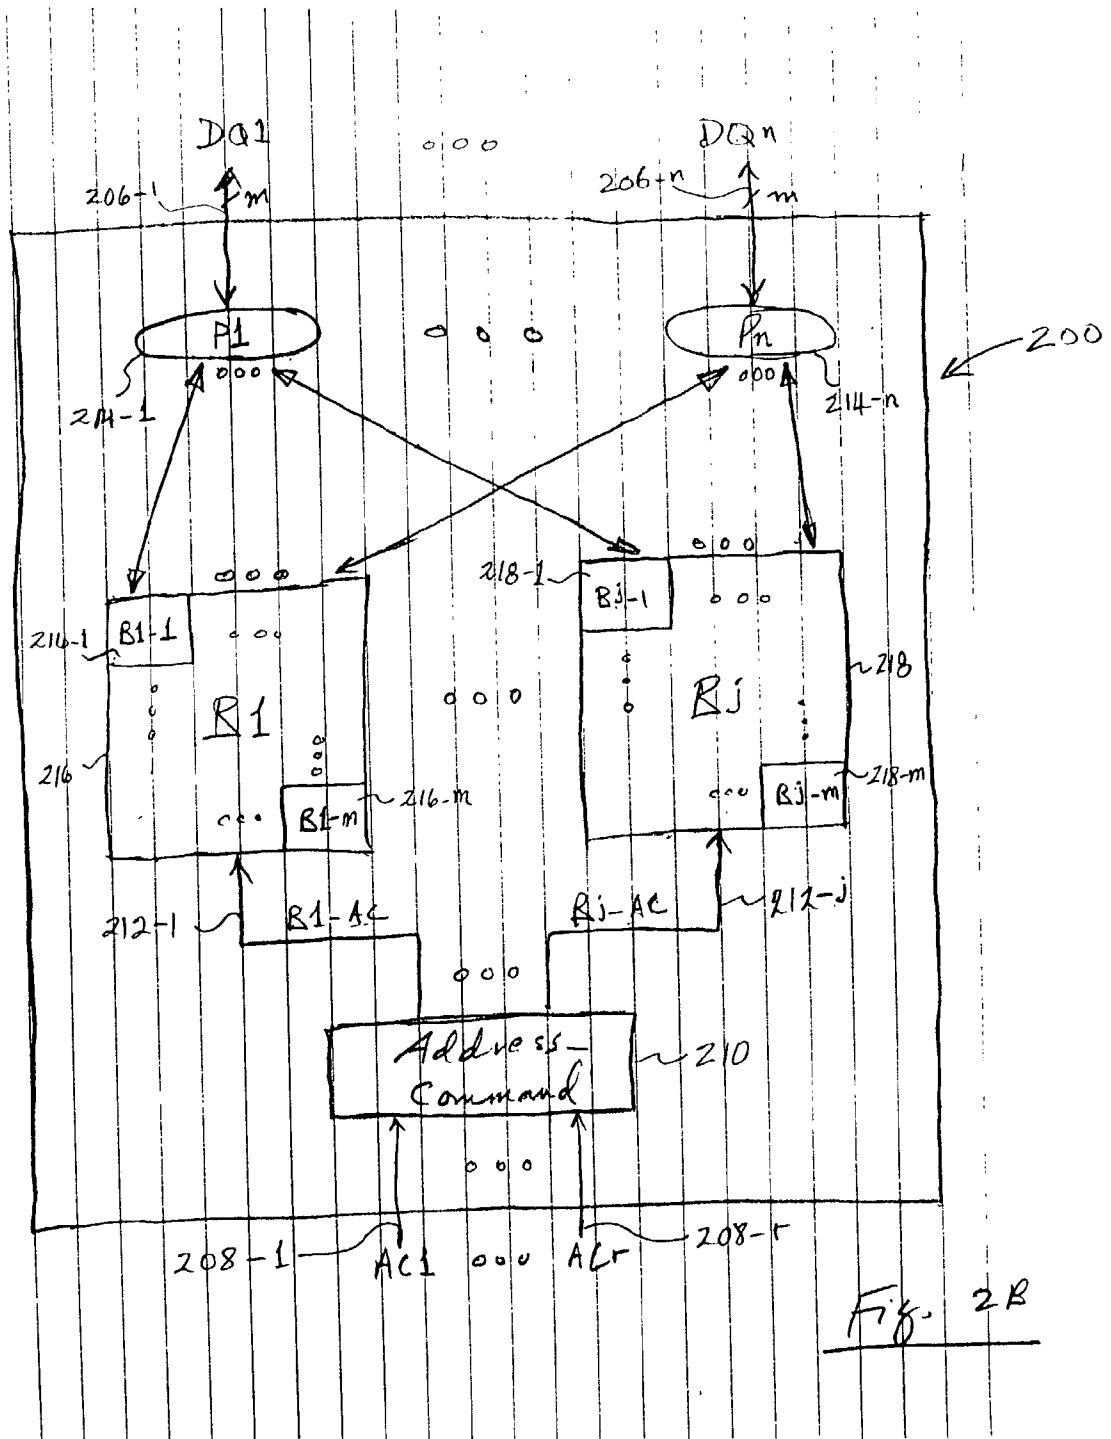 DQ1 ooo DQn
206-1 m 206-n m
P1 o o o Pn
200
214-1 ooo ooo 214-n
ooo ooo
218-1 Bj-1 ooo
216-1 B1-1 ooo
B1 ooo Bj 218
216
B1-m 216-m ooo Bj-m 218-m
212-1 B1-AC Bj-AC 212-j
ooo
Address-
Command
210
ooo
208-1 AC1 ooo ACr 208-r
Fig. 2B